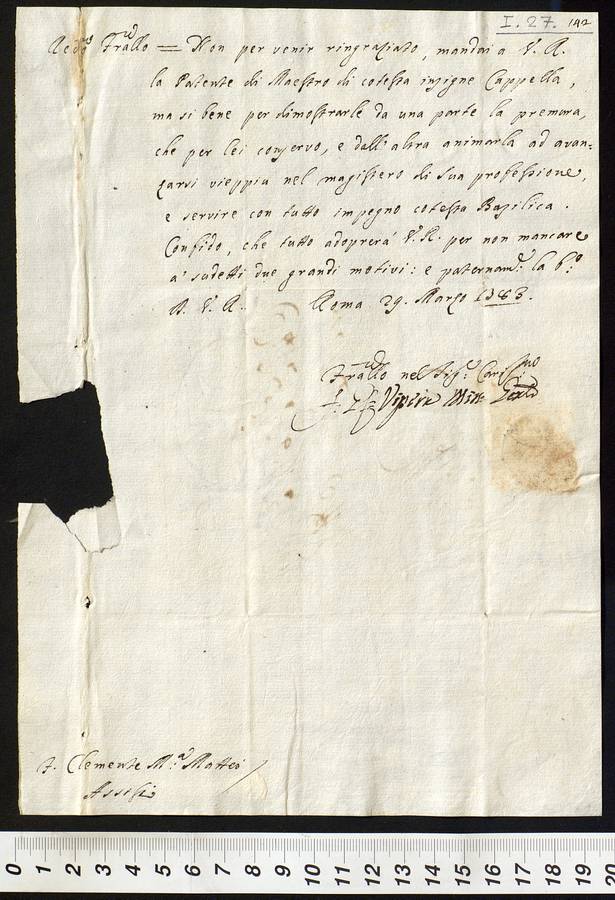 I. 27. 142
Non per venir ringraziato, mandai a V. R.
la Patente di Maestro di cotesta insigne Cappella,
ma si bene per dimostrarle da una parte la premura,
che per lei conservo, e dall'altra animarla ad avan=
zarsi vieppiù nel magistero di sua professione,
e servire con tutto impegno cotesta Basilica.
Confido, che tutto adoprerà V. R. per non mancare
a' sudetti due grandi motivi: e paternam.e la b.o
D. V. R. Roma 29. Marzo 1783.
nel Sig.e
Vipera Min.
F. Clemente M.a Mattei
Assisi
0 1 2 3 4 5 6 7 8 9 10 11 12 13 14 15 16 17 18 19 20